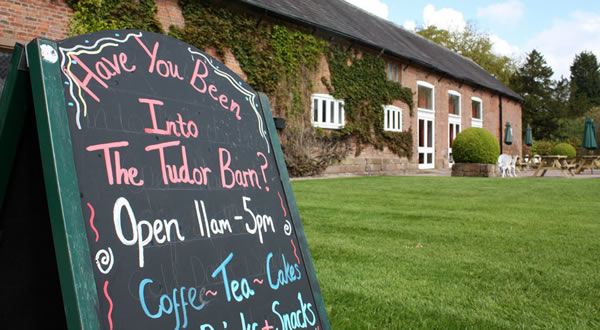 Have You Been
Into
The Tudor Barn?
Open 11am - 5pm
Coffee ~ Tea ~ Cakes
Drinks + Snacks